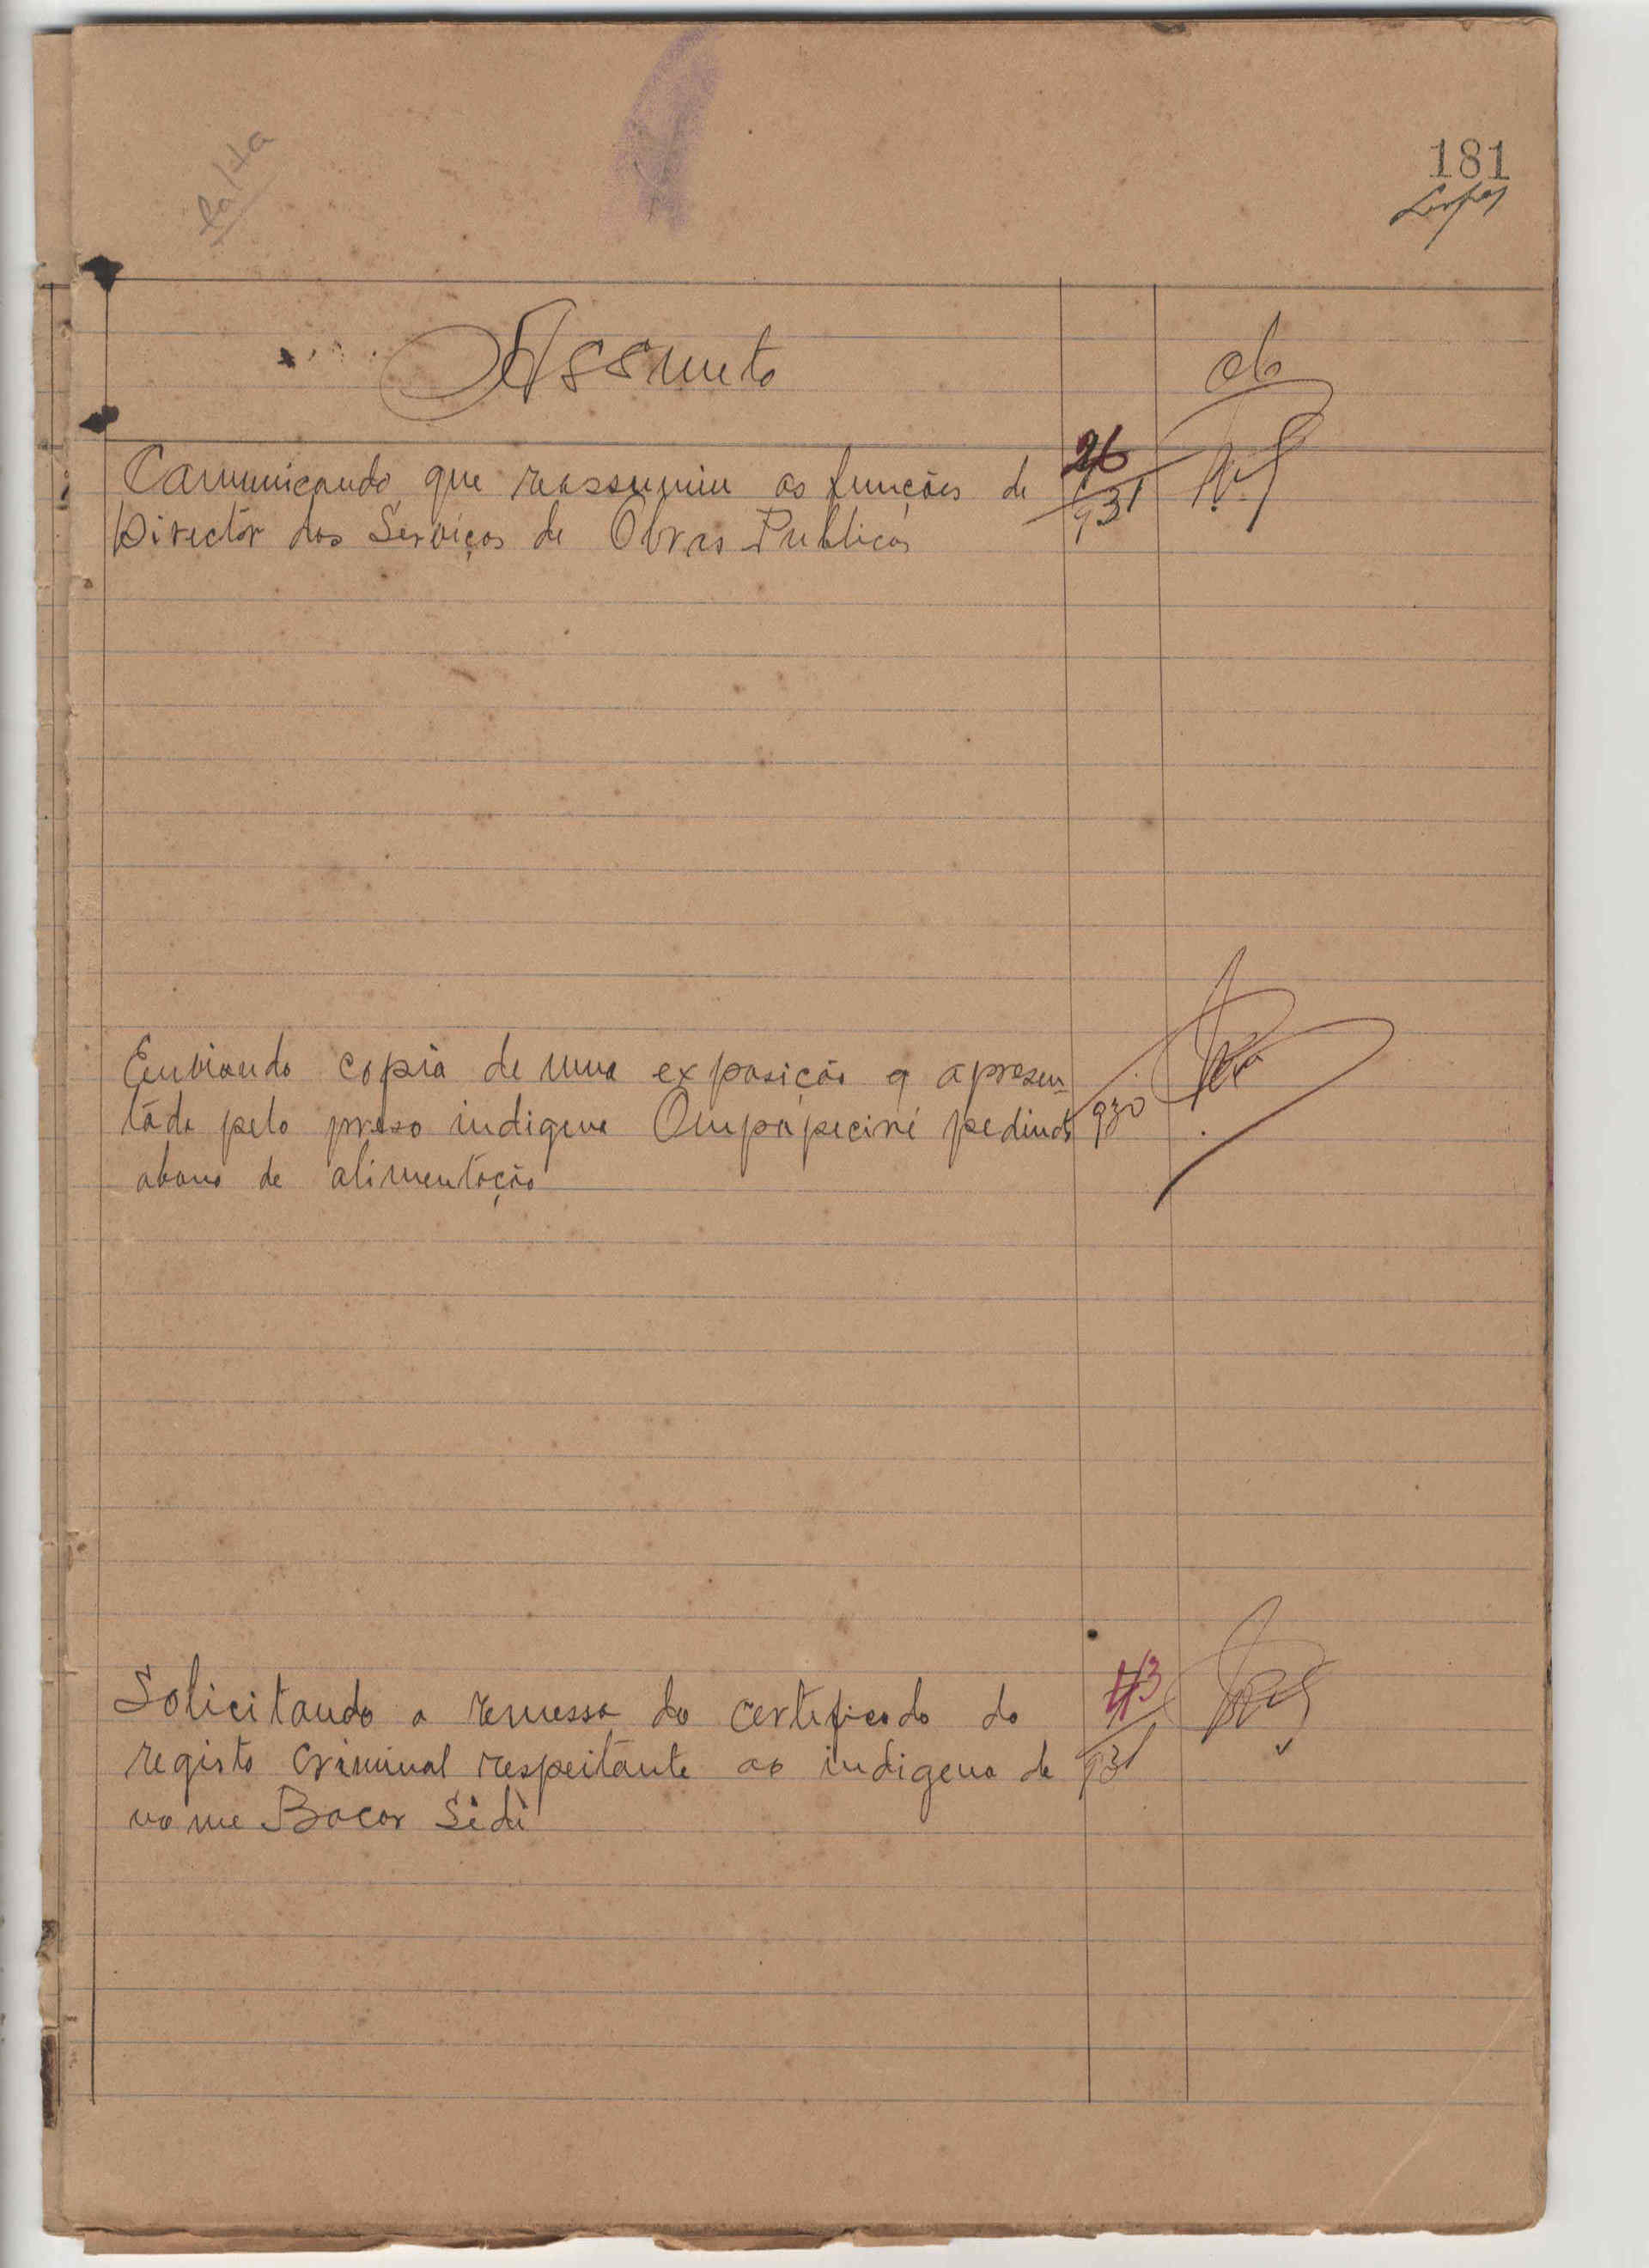 181
Lopes
falta
Assunto
ob
Comunicando que reassumiu as funções de 26/931
Director dos Serviços de Obras Publicas
Enviando copia de uma exposição q apresen-
tada pelo preso indigena pedindo 930
abono de alimentação
Solicitando a remessa do certificado do 43
registo criminal respeitante ao indigena de 931
nome Bacar Sidi